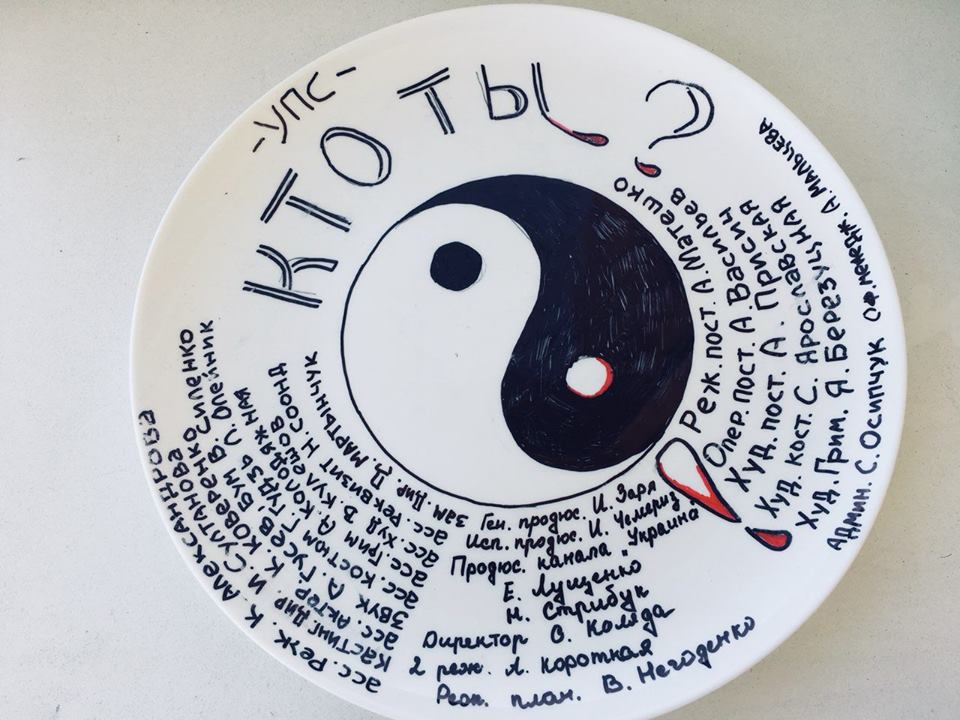 -УПС-
КТО ТЫ ?
Реж. пост. А. Матешко
Опер. пост. А. Васильев
Худ. пост. А. Присич
Худ. кост. С. Ярославская
Худ. Грим. Я. Березуцная
Админ. С. Осипчук Оф. менедж. А. Мальцева
Ген. продюс. И. Заря
Исп. продюс. И. Чемериц
Продюс. канала "Украина"
Е. Лущенко
Н. Стрибук
Директор О. Коляда
2 реж. Л. Короткая
Реж. план. В. Негоденко
Зам. Дир. Д. Мартынчук
асс. Реквизит Н. Соонд
асс. Худ В. Кулешов
асс. Грим А. Колодяжная
асс. костюм Г. Гудзь
Звук А. Гусев, бум В. Л. Олейник
асс. актер. К. Коверенко
Кастинг. Дир И. Султанова
асс. Реж. К. Александрова